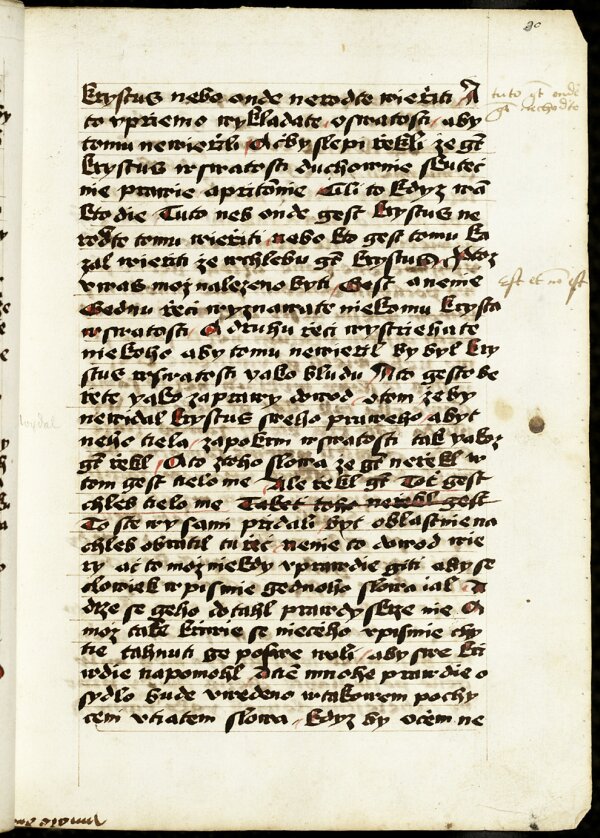 30
krystus nebo onde nerodte wieřiti A
to vpriemo wykladate o swatosti aby
tomu newieřili A čby slepi řekli že gt
krystus w swatosti duchownie skuteč
nie prawie a pritomie Cli to kdyz wā
kto die Tuto neb onde gest krystus ne
rodte tomu wieřiti nebo kto gest tomu ka
zal wieřiti že w chlebu gt krystus
v was moz nalezeno byti Gest a nenie
Gednu řeči wyznawate niekomu krysta
w swatosti A druhu řeci wystriehate
niekoho aby tomu newieřil by byl kry
stus w swatosti yako bludu A to gesto be
rete yako za prawy dowod o tom že by
newidal krystus sweho praweho a byt
neho tiela za pokrm w swatosti tak yakoz
gt řekl A to z toho slowa že gt neřekl w
tom gest tielo me Ale řekl gt Tot gest
chleb tielo me Taket toho neřekl gest
To ste wy sami pridali byt oblastnie na
chleb obratil tu řeč nenie to dowod wie
ry ač to moz niekdy vprawdie giti aby se
clowiek w pismie gednoho slowa ial A
drže se geho dotahl prawdy skrze nie A
moz také křiwie se niečeho v pismie chy
tie tahnuti ge po swe woli aby swe kři
wdie napomohl A tiem mnohe prawdie o
sydlo bude vwedeno w takowem pochy
ceni v tiatem slowa kdyz by očem ne
tuto gt onde
gt nechodte
Est et nō est